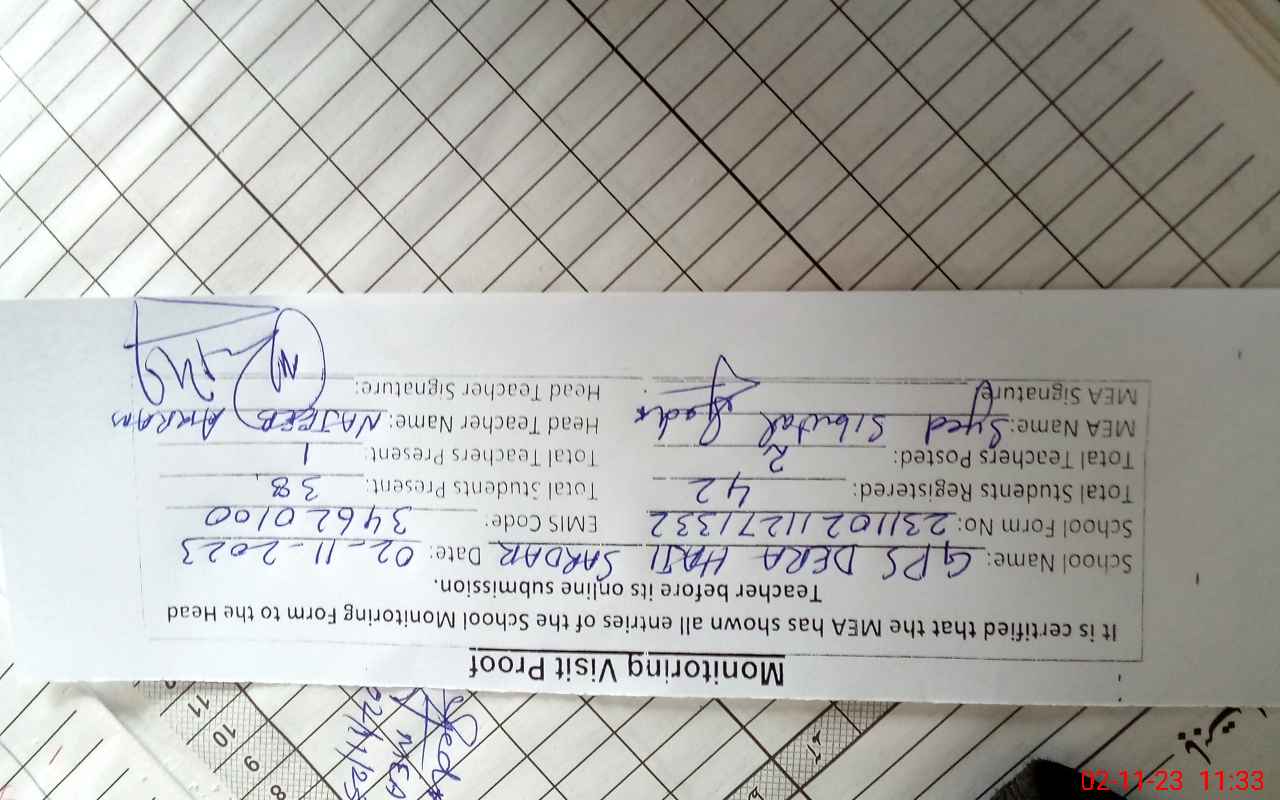 Monitoring Visit Proof
It is certified that the MEA has shown all entries of the School Monitoring Form to the Head
Teacher before its online submission.
School Name: GPS DERA HAJI SARDAR Date: 02-11-2023
School Form No: 23110211271332 EMIS Code: 34620100
Total Students Registered: 42 Total Students Present: 38
Total Teachers Posted: 2 Total Teachers Present: 1
MEA Name: Syed Head Teacher Name: NAJEEB AKRAM
MEA Signature: Head Teacher Signature:
MEA
8
9
10
11
02-11-23 11:33